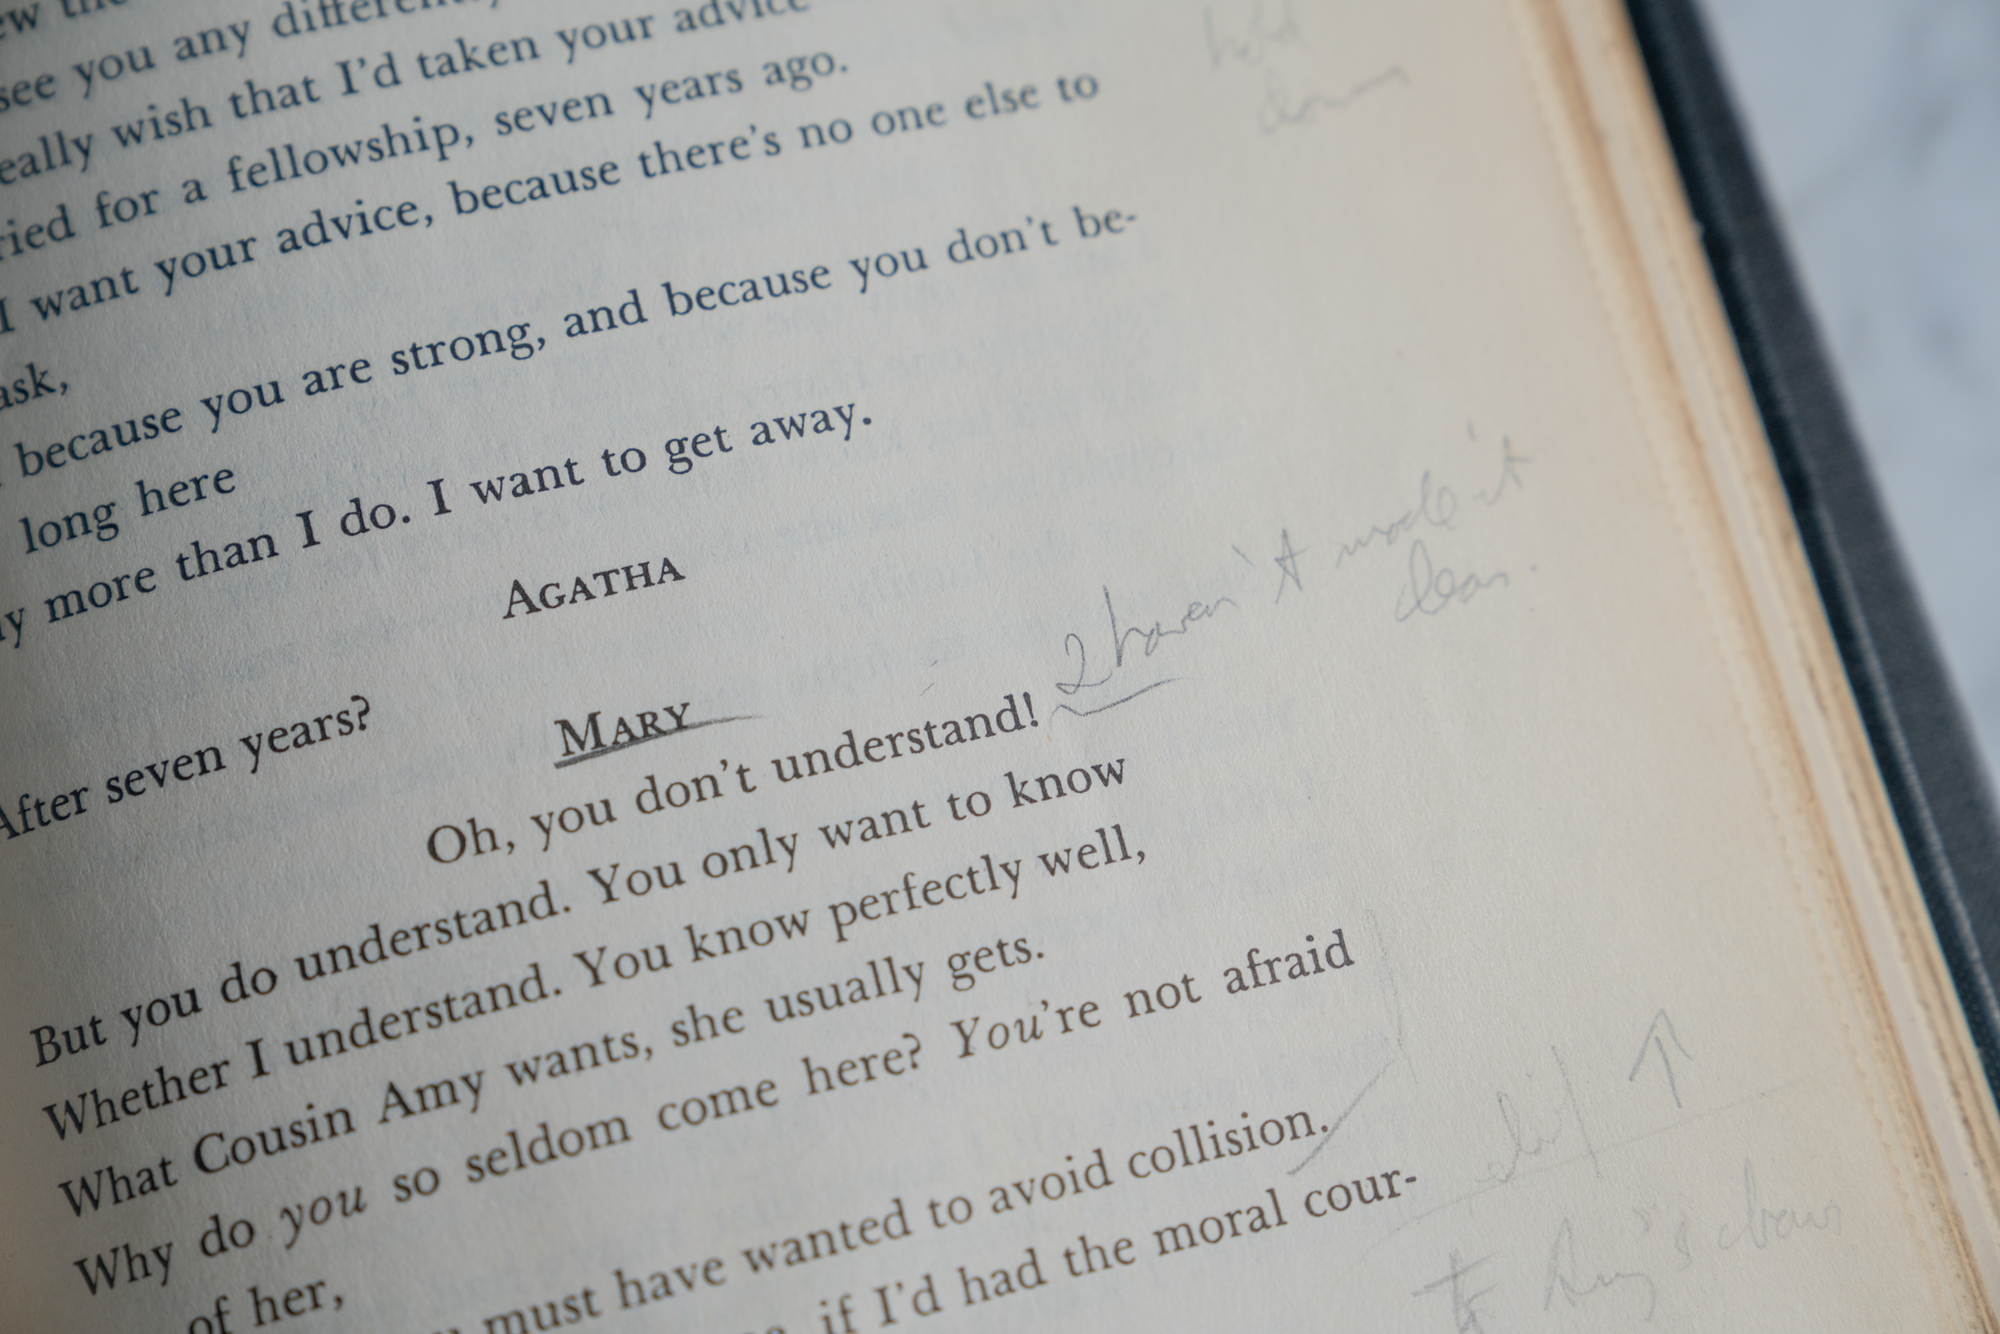 see you any differently
really wish that I'd taken your advice
tried for a fellowship, seven years ago.
I want your advice, because there's no one else to
ask,
because you are strong, and because you don't be-
long here
more than I do. I want to get away.
AGATHA
After seven years?
MARY
Oh, you don't understand!
haven't made it
clear.
But you do understand. You only want to know
Whether I understand. You know perfectly well,
What Cousin Amy wants, she usually gets.
Why do you so seldom come here? You're not afraid
of her,
must have wanted to avoid collision.
if I'd had the moral cour-
to Amy's chair